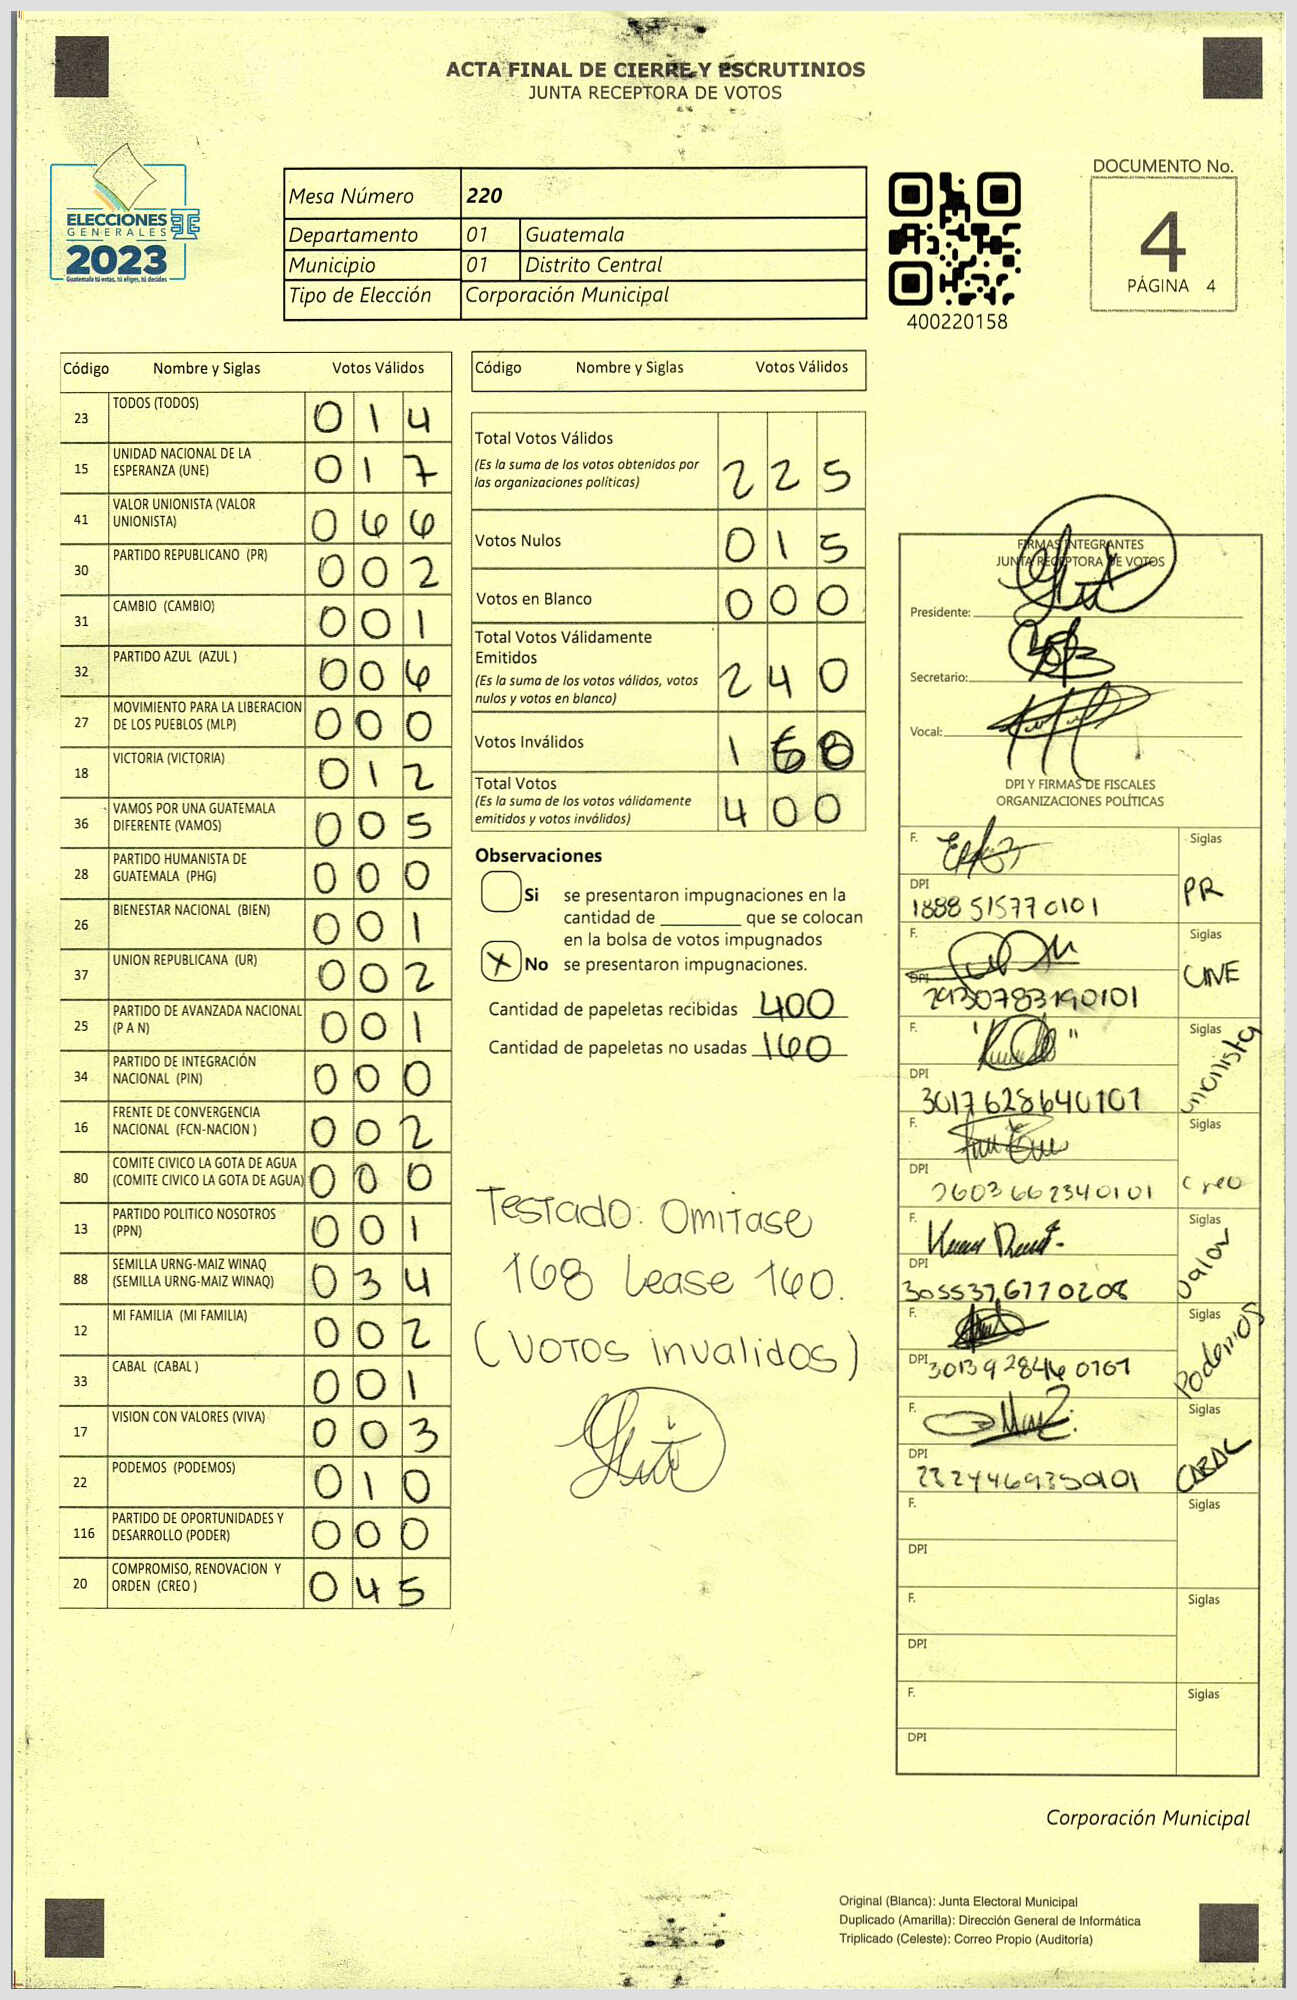 ACTA FINAL DE CIERRE Y ESCRUTINIOS
JUNTA RECEPTORA DE VOTOS
ELECCIONES
GENERALES
2023
Guatemala tú votas, tú eliges, tú decides
Mesa Número 220
Departamento 01 Guatemala
Municipio 01 Distrito Central
Tipo de Elección Corporación Municipal
400220158
DOCUMENTO No.
4
PÁGINA 4
Código Nombre y Siglas Votos Válidos
23 TODOS (TODOS) 0 1 4
15 UNIDAD NACIONAL DE LA ESPERANZA (UNE) 0 1 7
41 VALOR UNIONISTA (VALOR UNIONISTA) 0 6 6
30 PARTIDO REPUBLICANO (PR) 0 0 2
31 CAMBIO (CAMBIO) 0 0 1
32 PARTIDO AZUL (AZUL ) 0 0 6
27 MOVIMIENTO PARA LA LIBERACION DE LOS PUEBLOS (MLP) 0 0 0
18 VICTORIA (VICTORIA) 0 1 2
36 VAMOS POR UNA GUATEMALA DIFERENTE (VAMOS) 0 0 5
28 PARTIDO HUMANISTA DE GUATEMALA (PHG) 0 0 0
26 BIENESTAR NACIONAL (BIEN) 0 0 1
37 UNION REPUBLICANA (UR) 0 0 2
25 PARTIDO DE AVANZADA NACIONAL (P A N) 0 0 1
34 PARTIDO DE INTEGRACIÓN NACIONAL (PIN) 0 0 0
16 FRENTE DE CONVERGENCIA NACIONAL (FCN-NACION ) 0 0 2
80 COMITE CIVICO LA GOTA DE AGUA (COMITE CIVICO LA GOTA DE AGUA) 0 0 0
13 PARTIDO POLITICO NOSOTROS (PPN) 0 0 1
88 SEMILLA URNG-MAIZ WINAQ (SEMILLA URNG-MAIZ WINAQ) 0 3 4
12 MI FAMILIA (MI FAMILIA) 0 0 2
33 CABAL (CABAL ) 0 0 1
17 VISION CON VALORES (VIVA) 0 0 3
22 PODEMOS (PODEMOS) 0 1 0
116 PARTIDO DE OPORTUNIDADES Y DESARROLLO (PODER) 0 0 0
20 COMPROMISO, RENOVACION Y ORDEN (CREO ) 0 4 5
Código Nombre y Siglas Votos Válidos
Total Votos Válidos 2 2 5
(Es la suma de los votos obtenidos por
las organizaciones políticas)
Votos Nulos 0 1 5
Votos en Blanco 0 0 0
Total Votos Válidamente
Emitidos 2 4 0
(Es la suma de los votos válidos, votos
nulos y votos en blanco)
Votos Inválidos 1 6 8
Total Votos 4 0 0
(Es la suma de los votos válidamente
emitidos y votos inválidos)
Observaciones
Si se presentaron impugnaciones en la
cantidad de ________ que se colocan
en la bolsa de votos impugnados
X No se presentaron impugnaciones.
Cantidad de papeletas recibidas 400
Cantidad de papeletas no usadas 160
Testado: Omitase
168 Lease 160.
(Votos invalidos)
FIRMAS INTEGRANTES
JUNTA RECEPTORA DE VOTOS
Presidente:
Secretario:
Vocal:
DPI Y FIRMAS DE FISCALES
ORGANIZACIONES POLÍTICAS
F. Siglas
PR
DPI
1888 51577 0101
F. Siglas
UNE
DPI
2930783190101
F. Siglas
unionista
DPI
3017628640101
F. Siglas
Creo
DPI
2603662340101
F. Siglas
Valor
DPI
3055376770208
F. Siglas
Podemos
DPI
3013928460101
F. Siglas
CABAL
DPI
2324469350101
F. Siglas
DPI
F. Siglas
DPI
F. Siglas
DPI
Corporación Municipal
Original (Blanca): Junta Electoral Municipal
Duplicado (Amarilla): Dirección General de Informática
Triplicado (Celeste): Correo Propio (Auditoría)